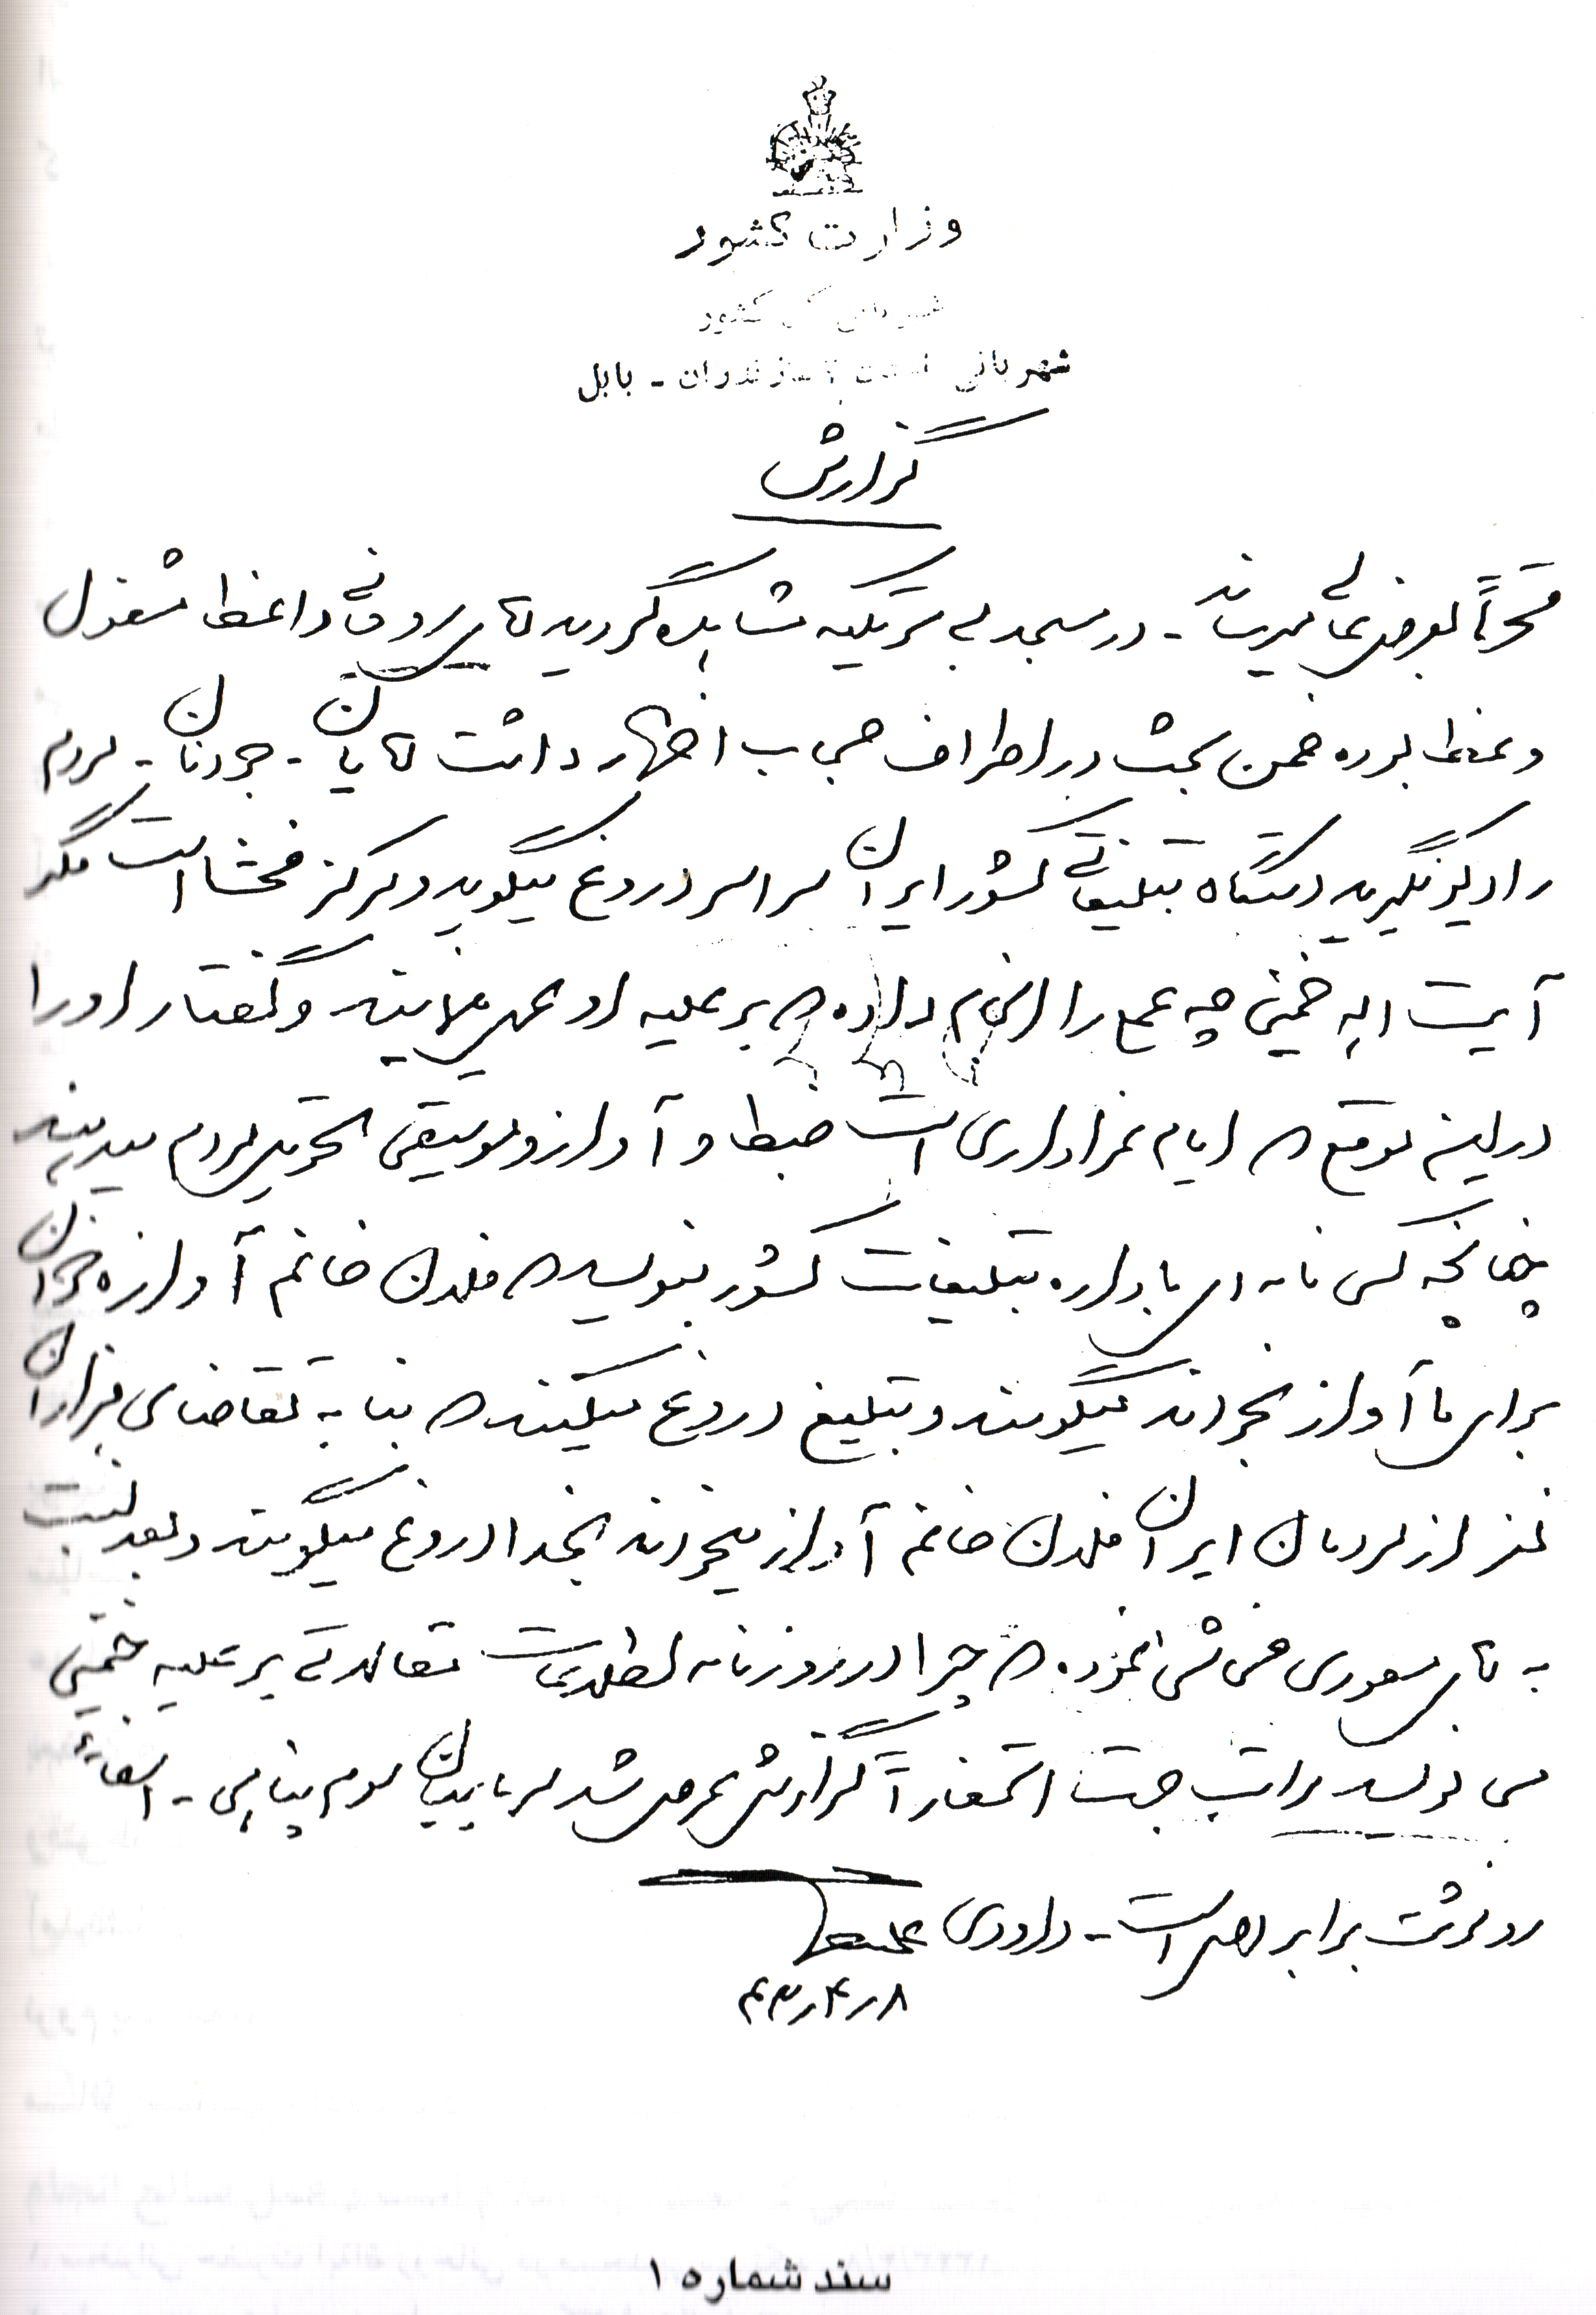 وزارت کشور
شهربانی کل کشور
شهربانی استان مازندران - بابل
گزارش
محترماً بعرض عالی میرساند - در مسجد بی سرتکیه مشاهده گردید آقای روحانی واعظ مشغول
وعظ بوده ضمن بحث در اطراف حجاب اظهار داشت آقایان - جوانان - مردم
رادیو نگیرید دستگاه تبلیغاتی کشور ایران سراسر دروغ میگوید و مرکز فحشا است مگر
آیت اله خمینی چه عملی را انجام داده که بر علیه او عمل مینمایند و گفتار او را
در این موقع که ایام عزاداری است ضبط و آواز و موسیقی تحویل مردم میدهند
چنانچه کسی نامه ای باداره تبلیغات کشور بنویسد که فلان خانم آوازه خوان
برای ما آواز بخواند میگویند و تبلیغ دروغ میکنند که بنا به تقاضای هزاران
نفر از مردمان ایران فلان خانم آواز میخواند بخدا دروغ میگویند و بعد نسبت
به آقای مسعودی فحاشی نموده که چرا در روزنامه اطلاعات مقالاتی بر علیه خمینی
می نویسد مراتب جهت استحضار گزارش عرض شد سرپاسبان سوم پناهی -
رونوشت برابر اصل است - داودی
۸ر۴ر۴۳
سند شماره ۱